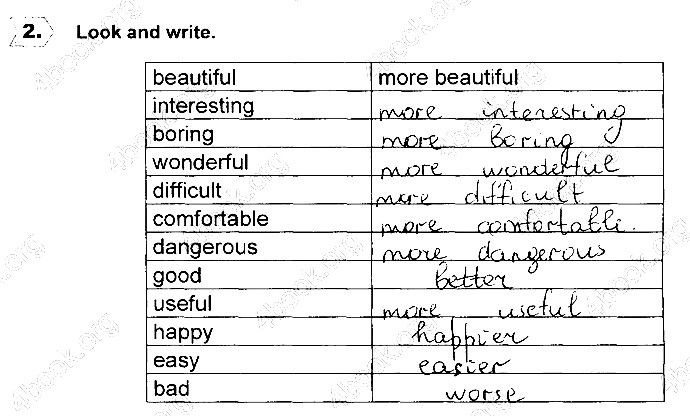 2. Look and write.
beautiful more beautiful
interesting more interesting
boring more Boring
wonderful more wonderful
difficult more difficult
comfortable more comfortable.
dangerous more dangerous
good better
useful more useful
happy happier
easy easier
bad worse
4book.org